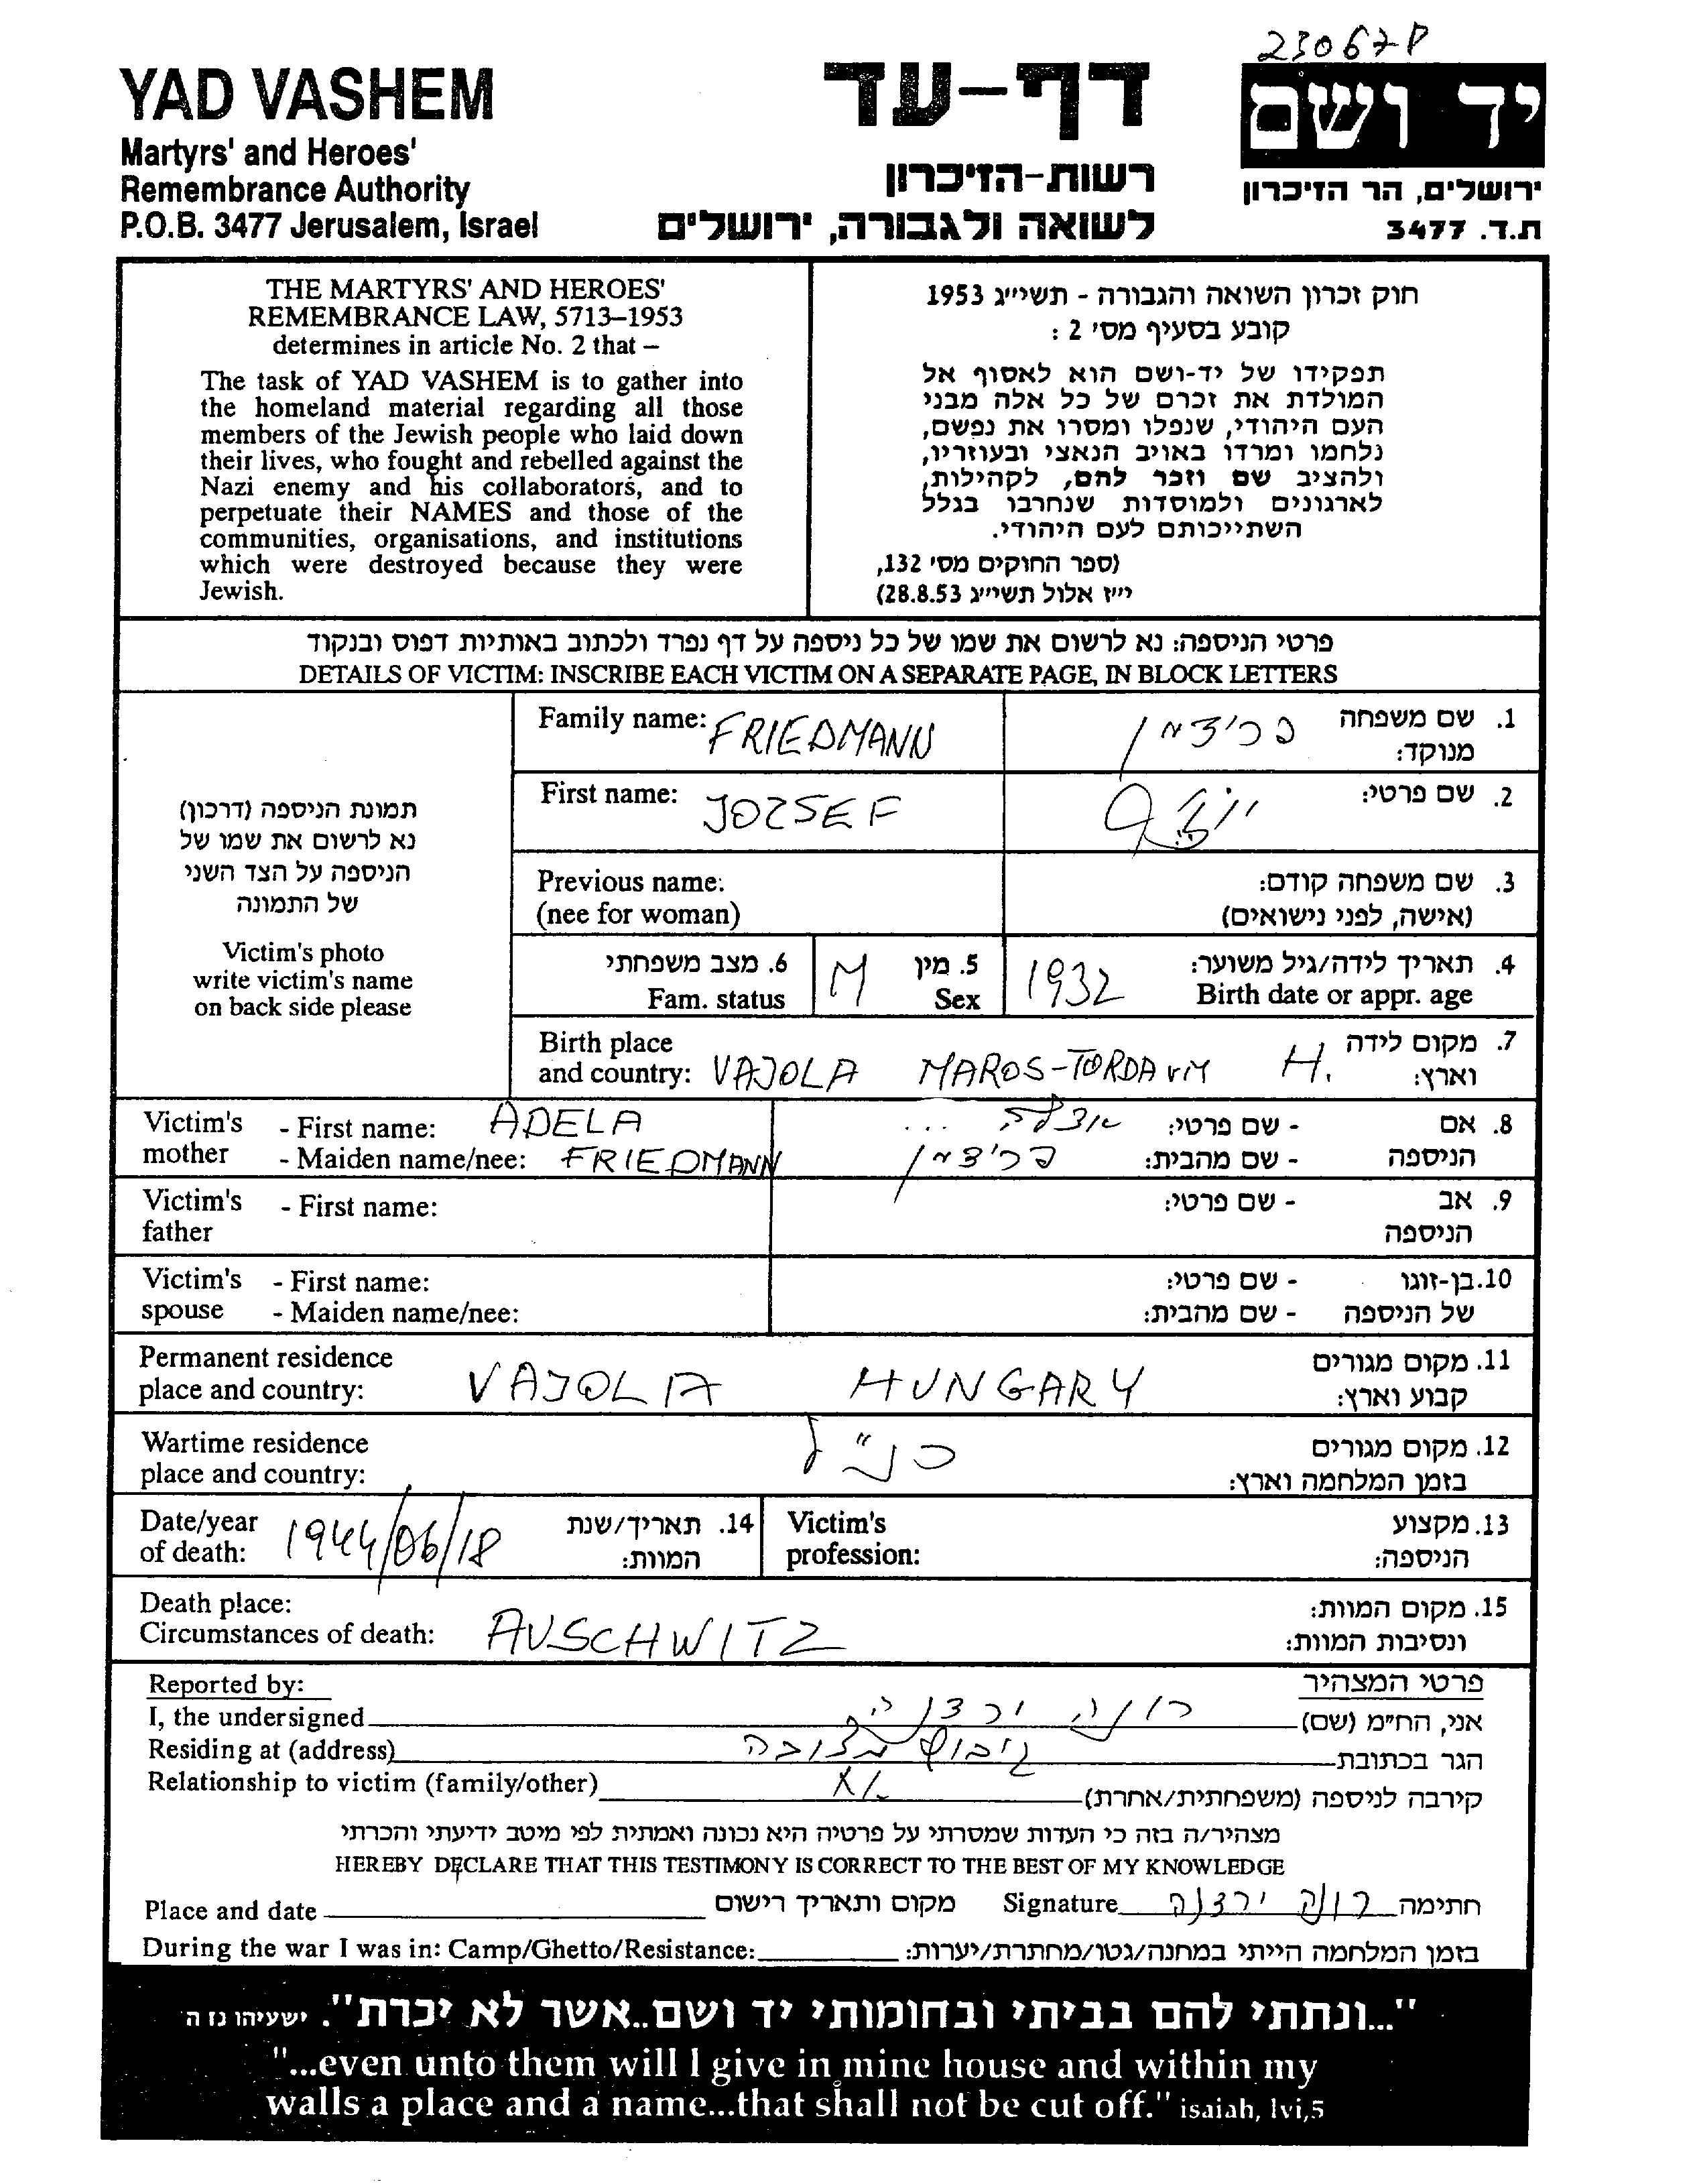 230678
YAD VASHEM
Martyrs' and Heroes'
Remembrance Authority
P.O.B. 3477 Jerusalem, Israel
דף-עד
רשות-הזיכרון
לשואה ולגבורה, ירושלים
יד ושם
ירושלים, הר הזיכרון
ת.ד. 3477
THE MARTYRS' AND HEROES'
REMEMBRANCE LAW, 5713–1953
determines in article No. 2 that –
The task of YAD VASHEM is to gather into
the homeland material regarding all those
members of the Jewish people who laid down
their lives, who fought and rebelled against the
Nazi enemy and his collaborators, and to
perpetuate their NAMES and those of the
communities, organisations, and institutions
which were destroyed because they were
Jewish.
חוק זכרון השואה והגבורה - תשי״ג 1953
קובע בסעיף מס׳ 2 :
תפקידו של יד-ושם הוא לאסוף אל
המולדת את זכרם של כל אלה מבני
העם היהודי, שנפלו ומסרו את נפשם,
נלחמו ומרדו באויב הנאצי ובעוזריו,
ולהציב שם וזכר להם, לקהילות,
לארגונים ולמוסדות שנחרבו בגלל
השתייכותם לעם היהודי.
(ספר החוקים מס׳ 132,
י״ז אלול תשי״ג 28.8.53)
פרטי הניספה: נא לרשום את שמו של כל ניספה על דף נפרד ולכתוב באותיות דפוס ובנקוד
DETAILS OF VICTIM: INSCRIBE EACH VICTIM ON A SEPARATE PAGE, IN BLOCK LETTERS
תמונת הניספה (דרכון)
נא לרשום את שמו של
הניספה על הצד השני
של התמונה
Victim's photo
write victim's name
on back side please
Family name: FRIEDMANN פרידמן 1. שם משפחה
מנוקד:
First name: JOZSEF יוזף 2. שם פרטי:
Previous name: 3. שם משפחה קודם:
(nee for woman) (אישה, לפני נישואים)
6. מצב משפחתי M 5. מין 1932 4. תאריך לידה/גיל משוער:
Fam. status Sex Birth date or appr. age
Birth place 7. מקום לידה
and country: VAJOLA MAROS-TORDA VM H. וארץ:
Victim's - First name: ADELA ... אדלה - שם פרטי: 8. אם
mother - Maiden name/nee: FRIEDMANN פרידמן - שם מהבית: הניספה
Victim's - First name: - שם פרטי: 9. אב
father הניספה
Victim's - First name: - שם פרטי: 10. בן-זוגו
spouse - Maiden name/nee: - שם מהבית: של הניספה
Permanent residence 11. מקום מגורים
place and country: VAJOLA HUNGARY קבוע וארץ:
Wartime residence כנ"ל 12. מקום מגורים
place and country: בזמן המלחמה וארץ:
Date/year 1944/06/18 14. תאריך/שנת Victim's 13. מקצוע
of death: המוות: profession: הניספה:
Death place: 15. מקום המוות:
Circumstances of death: AUSCHWITZ ונסיבות המוות:
Reported by: פרטי המצהיר
I, the undersigned רונה ירדנה אני, החי״מ (שם)
Residing at (address) קיבוץ מצובה הגר בכתובת
Relationship to victim (family/other) לא קירבה לניספה (משפחתית/אחרת)
מצהיר/ה בזה כי העדות שמסרתי על פרטיה היא נכונה ואמתית לפי מיטב ידיעתי והכרתי
HEREBY DECLARE THAT THIS TESTIMONY IS CORRECT TO THE BEST OF MY KNOWLEDGE
Place and date מקום ותאריך רישום Signature רונה ירדנה חתימה
During the war I was in: Camp/Ghetto/Resistance: בזמן המלחמה הייתי במחנה/גטו/מחתרת/יערות:
"...ונתתי להם בביתי ובחומותי יד ושם..אשר לא יכרת". ישעיהו נז ה
"...even unto them will I give in mine house and within my
walls a place and a name...that shall not be cut off." isaiah, lvi,5